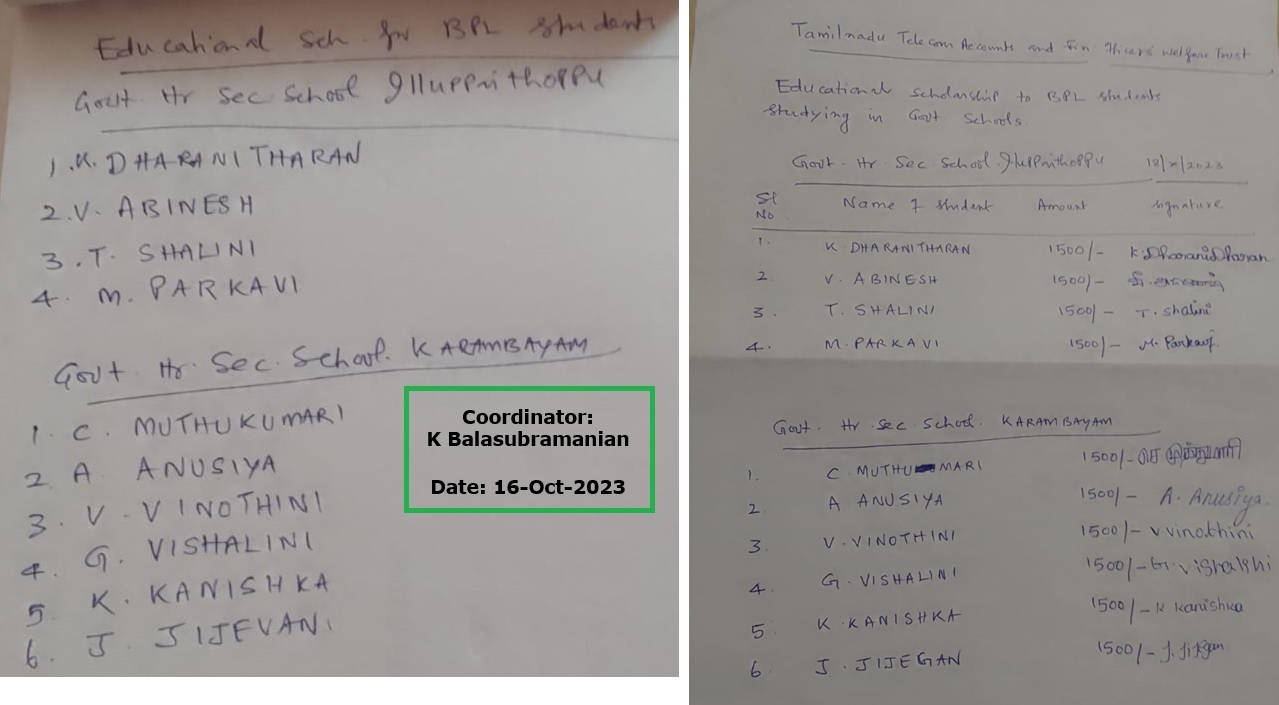 Educational Sch. for BPL students
Govt. Hr Sec School Illuppaithoppu
1. K. DHARANITHARAN
2. V. ABINESH
3. T. SHALINI
4. M. PARKAVI
Govt. Hr. Sec. School. KARAMBAYAM
1. C. MUTHUKUMARI
2 A. ANUSIYA
3. V. VINOTHINI
4. G. VISHALINI
5 K. KANISHKA
6. J. JIJEVANI
Coordinator:
K Balasubramanian
Date: 16-Oct-2023
Tamilnadu Telecom Accounts and Fin officers welfare Trust
Educational scholarship to BPL students
studying in Govt Schools
Govt. Hr. Sec. School. Illuppaithoppu 12/X/2023
Sl No Name of student Amount signature
1. K. DHARANITHARAN 1500/- K. DharaniDharan
2. V. ABINESH 1500/-
3. T. SHALINI 1500/- T. Shalini
4. M. PARKAVI 1500/- M. Parkavi
Govt. Hr. Sec. School. KARAMBAYAM
1. C. MUTHU MARI 1500/- செ முத்துமாரி
2. A ANUSIYA 1500/- A. Anusiya.
3. V. VINOTHINI 1500/- V vinothini
4. G. VISHALINI 1500/- G.
5. K. KANISHKA 1500/- K Kanishka
6 J. JIJEGAN 1500/- J. Jijegan